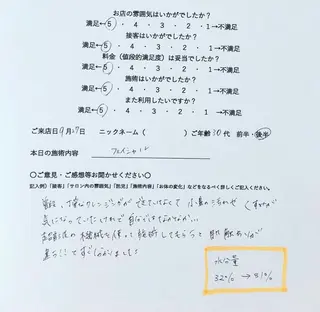 お店の雰囲気はいかがでしたか?
満足←5 ・ 4 ・ 3 ・ 2 ・ 1→不満足
接客はいかがでしたか?
満足←5 ・ 4 ・ 3 ・ 2 ・ 1→不満足
料金(値段的満足度)は妥当でしたか?
満足←5 ・ 4 ・ 3 ・ 2 ・ 1→不満足
施術はいかがでしたか?
満足←5 ・ 4 ・ 3 ・ 2 ・ 1→不満足
また利用したいですか?
満足←5 ・ 4 ・ 3 ・ 2 ・ 1→不満足
ご来店日9月17日 ニックネーム( )ご年齢30代 前半・後半
本日の施術内容 フェイシャル
〇ご意見・ご感想等お聞かせください〇
記入例)「接客」「サロン内の雰囲気」「肌質」「施術内容」「お体の変化」などをなるべく詳しくご記入ください。
普段、クレンジングが
気になっていたけれど自分では
機械を使って施術してもらうと肌
違う!!とすぐ分かりました!
水分量
32% → 51%